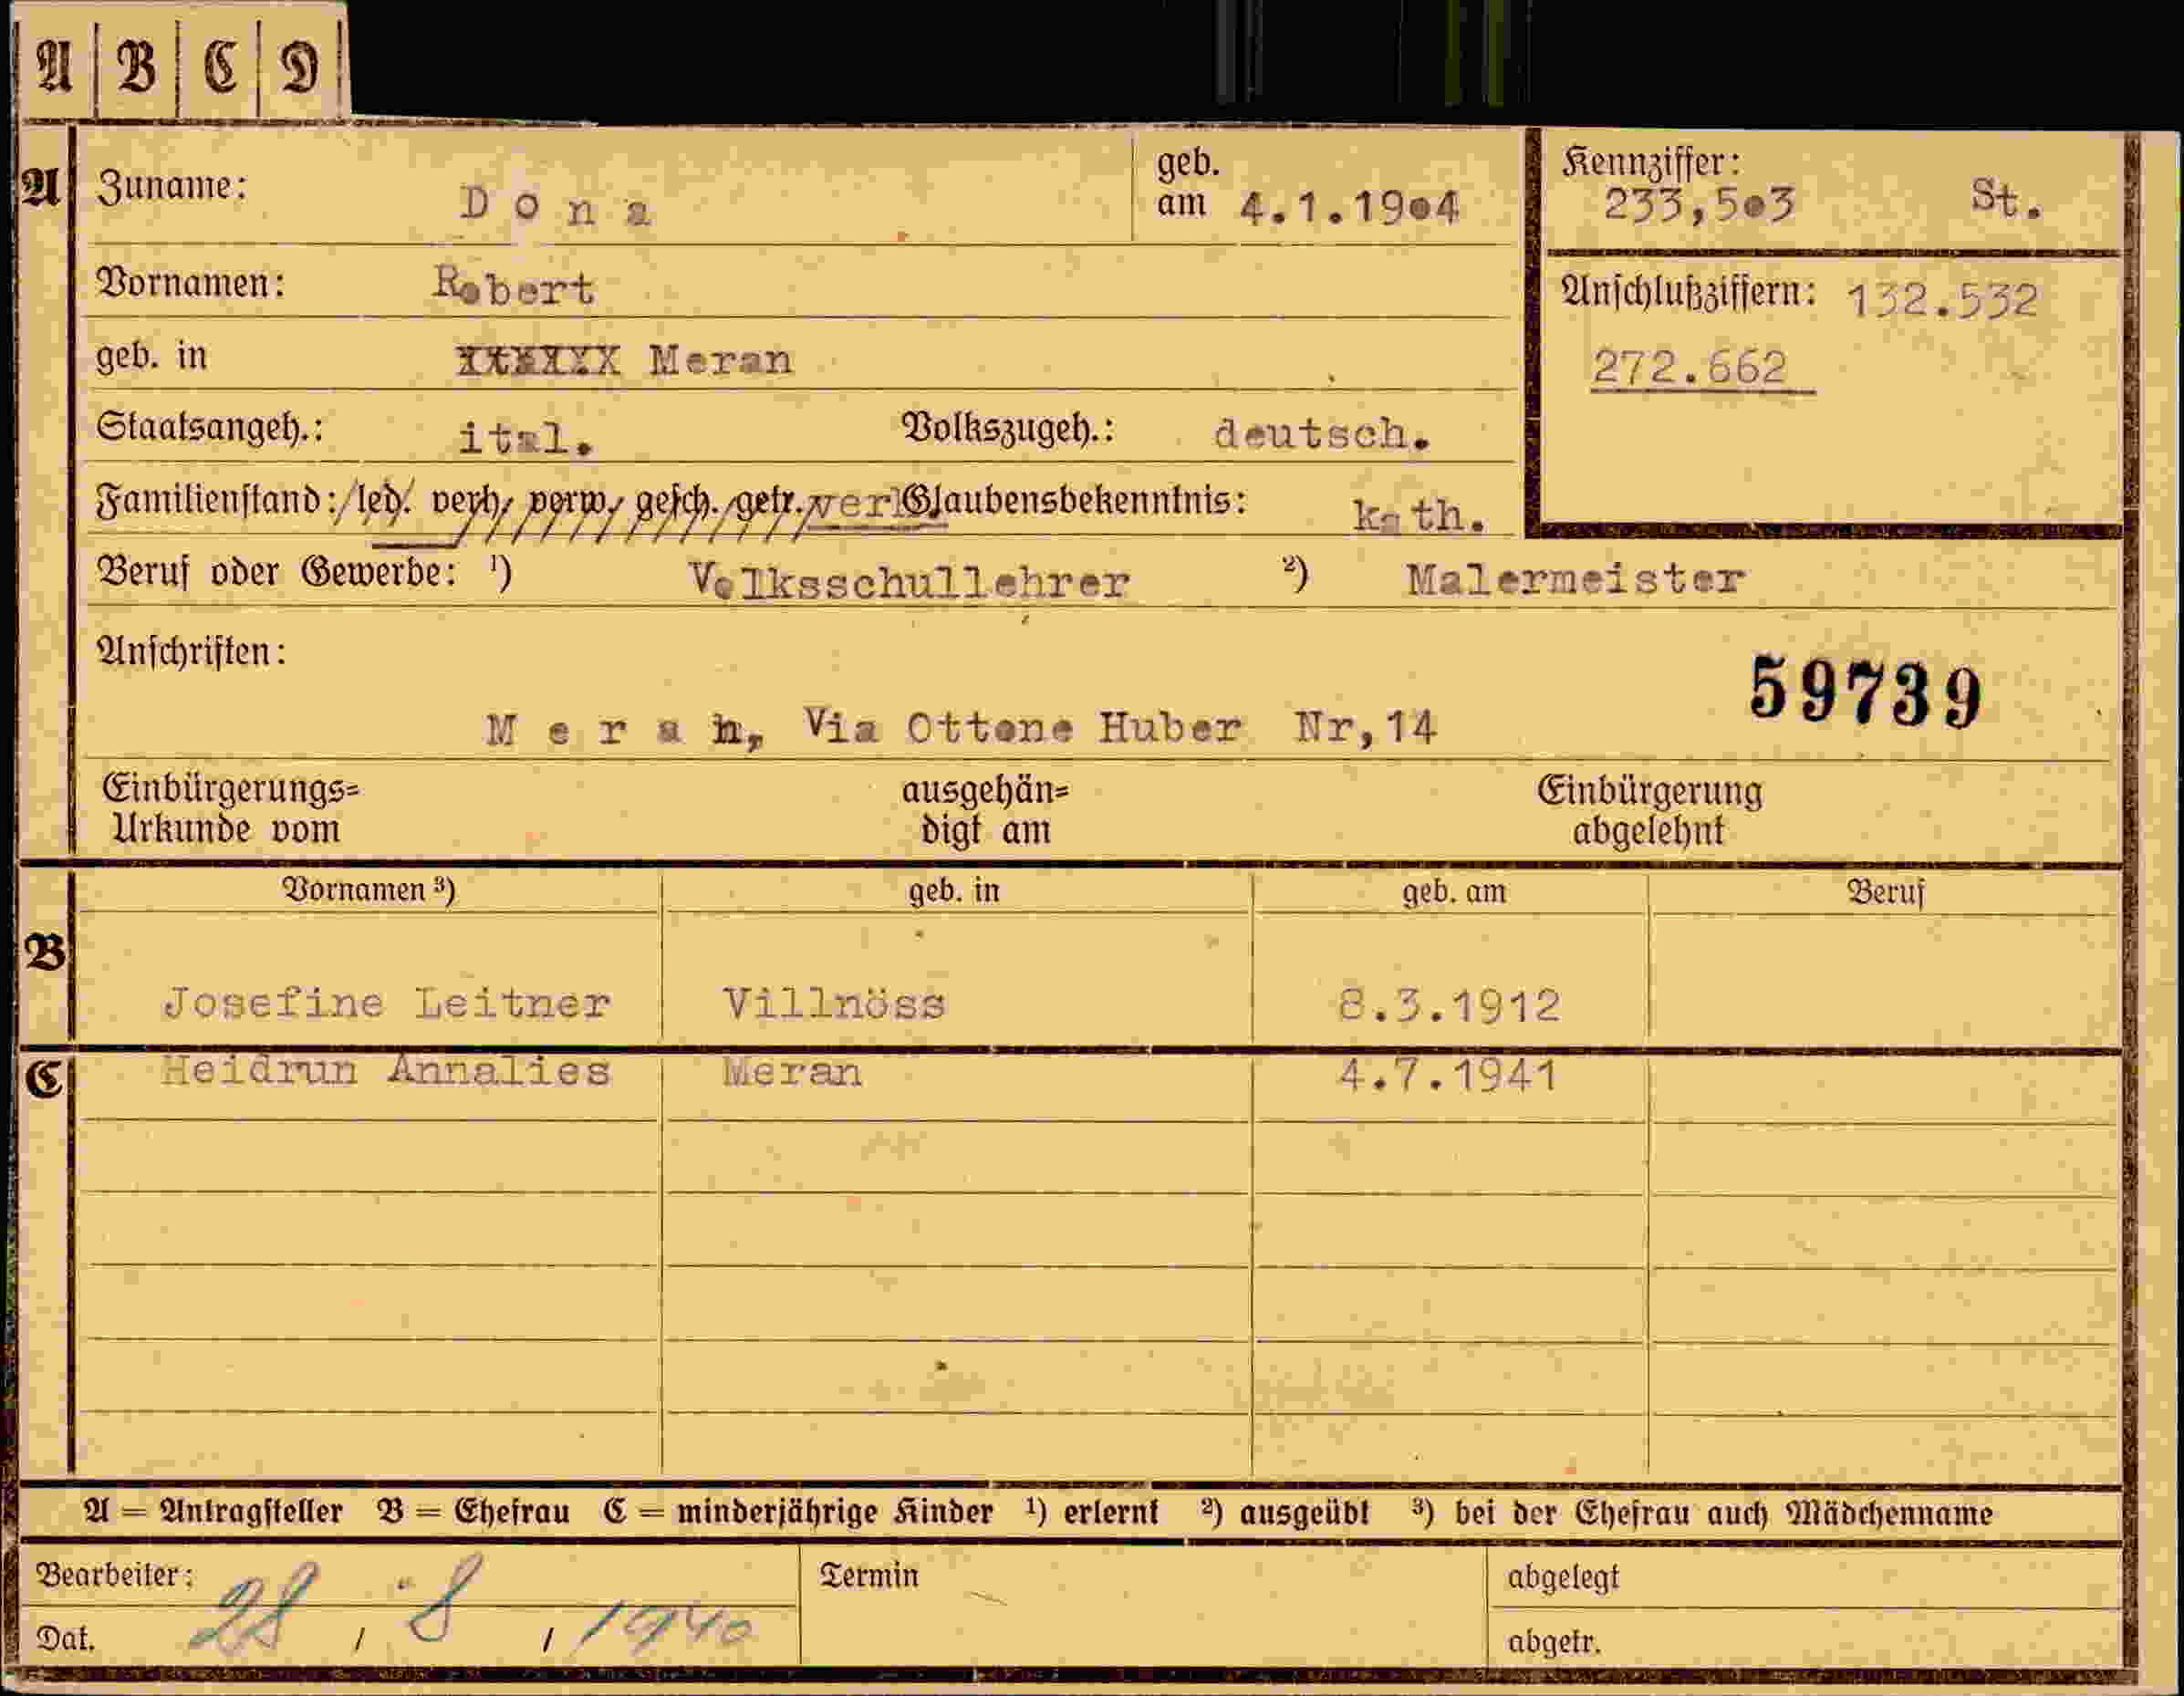 A B C D
A Zuname: Dona geb. am 4.1.1904
Kennziffer: 233,503 St.
Vornamen: Robert
Anschlußziffern: 132.532
272.662
geb. in Meran
Staatsangeh.: ital. Volkszugeh.: deutsch.
Familienstand: led. verh. verw. gesch. getr. verh Glaubensbekenntnis: kath.
Beruf oder Gewerbe: ¹) Volksschullehrer ²) Malermeister
Anschriften:
59739
Meran, Via Ottone Huber Nr,14
Einbürgerungs= Urkunde vom ausgehän= digt am Einbürgerung abgelehnt
Vornamen ³) geb. in geb. am Beruf
B
Josefine Leitner Villnöss 8.3.1912
C Heidrun Annalies Meran 4.7.1941
A = Antragsteller B = Ehefrau C = minderjährige Kinder ¹) erlernt ²) ausgeübt ³) bei der Ehefrau auch Mädchenname
Bearbeiter: Termin abgelegt
Dat. 28 / 8 / 1940 abgetr.